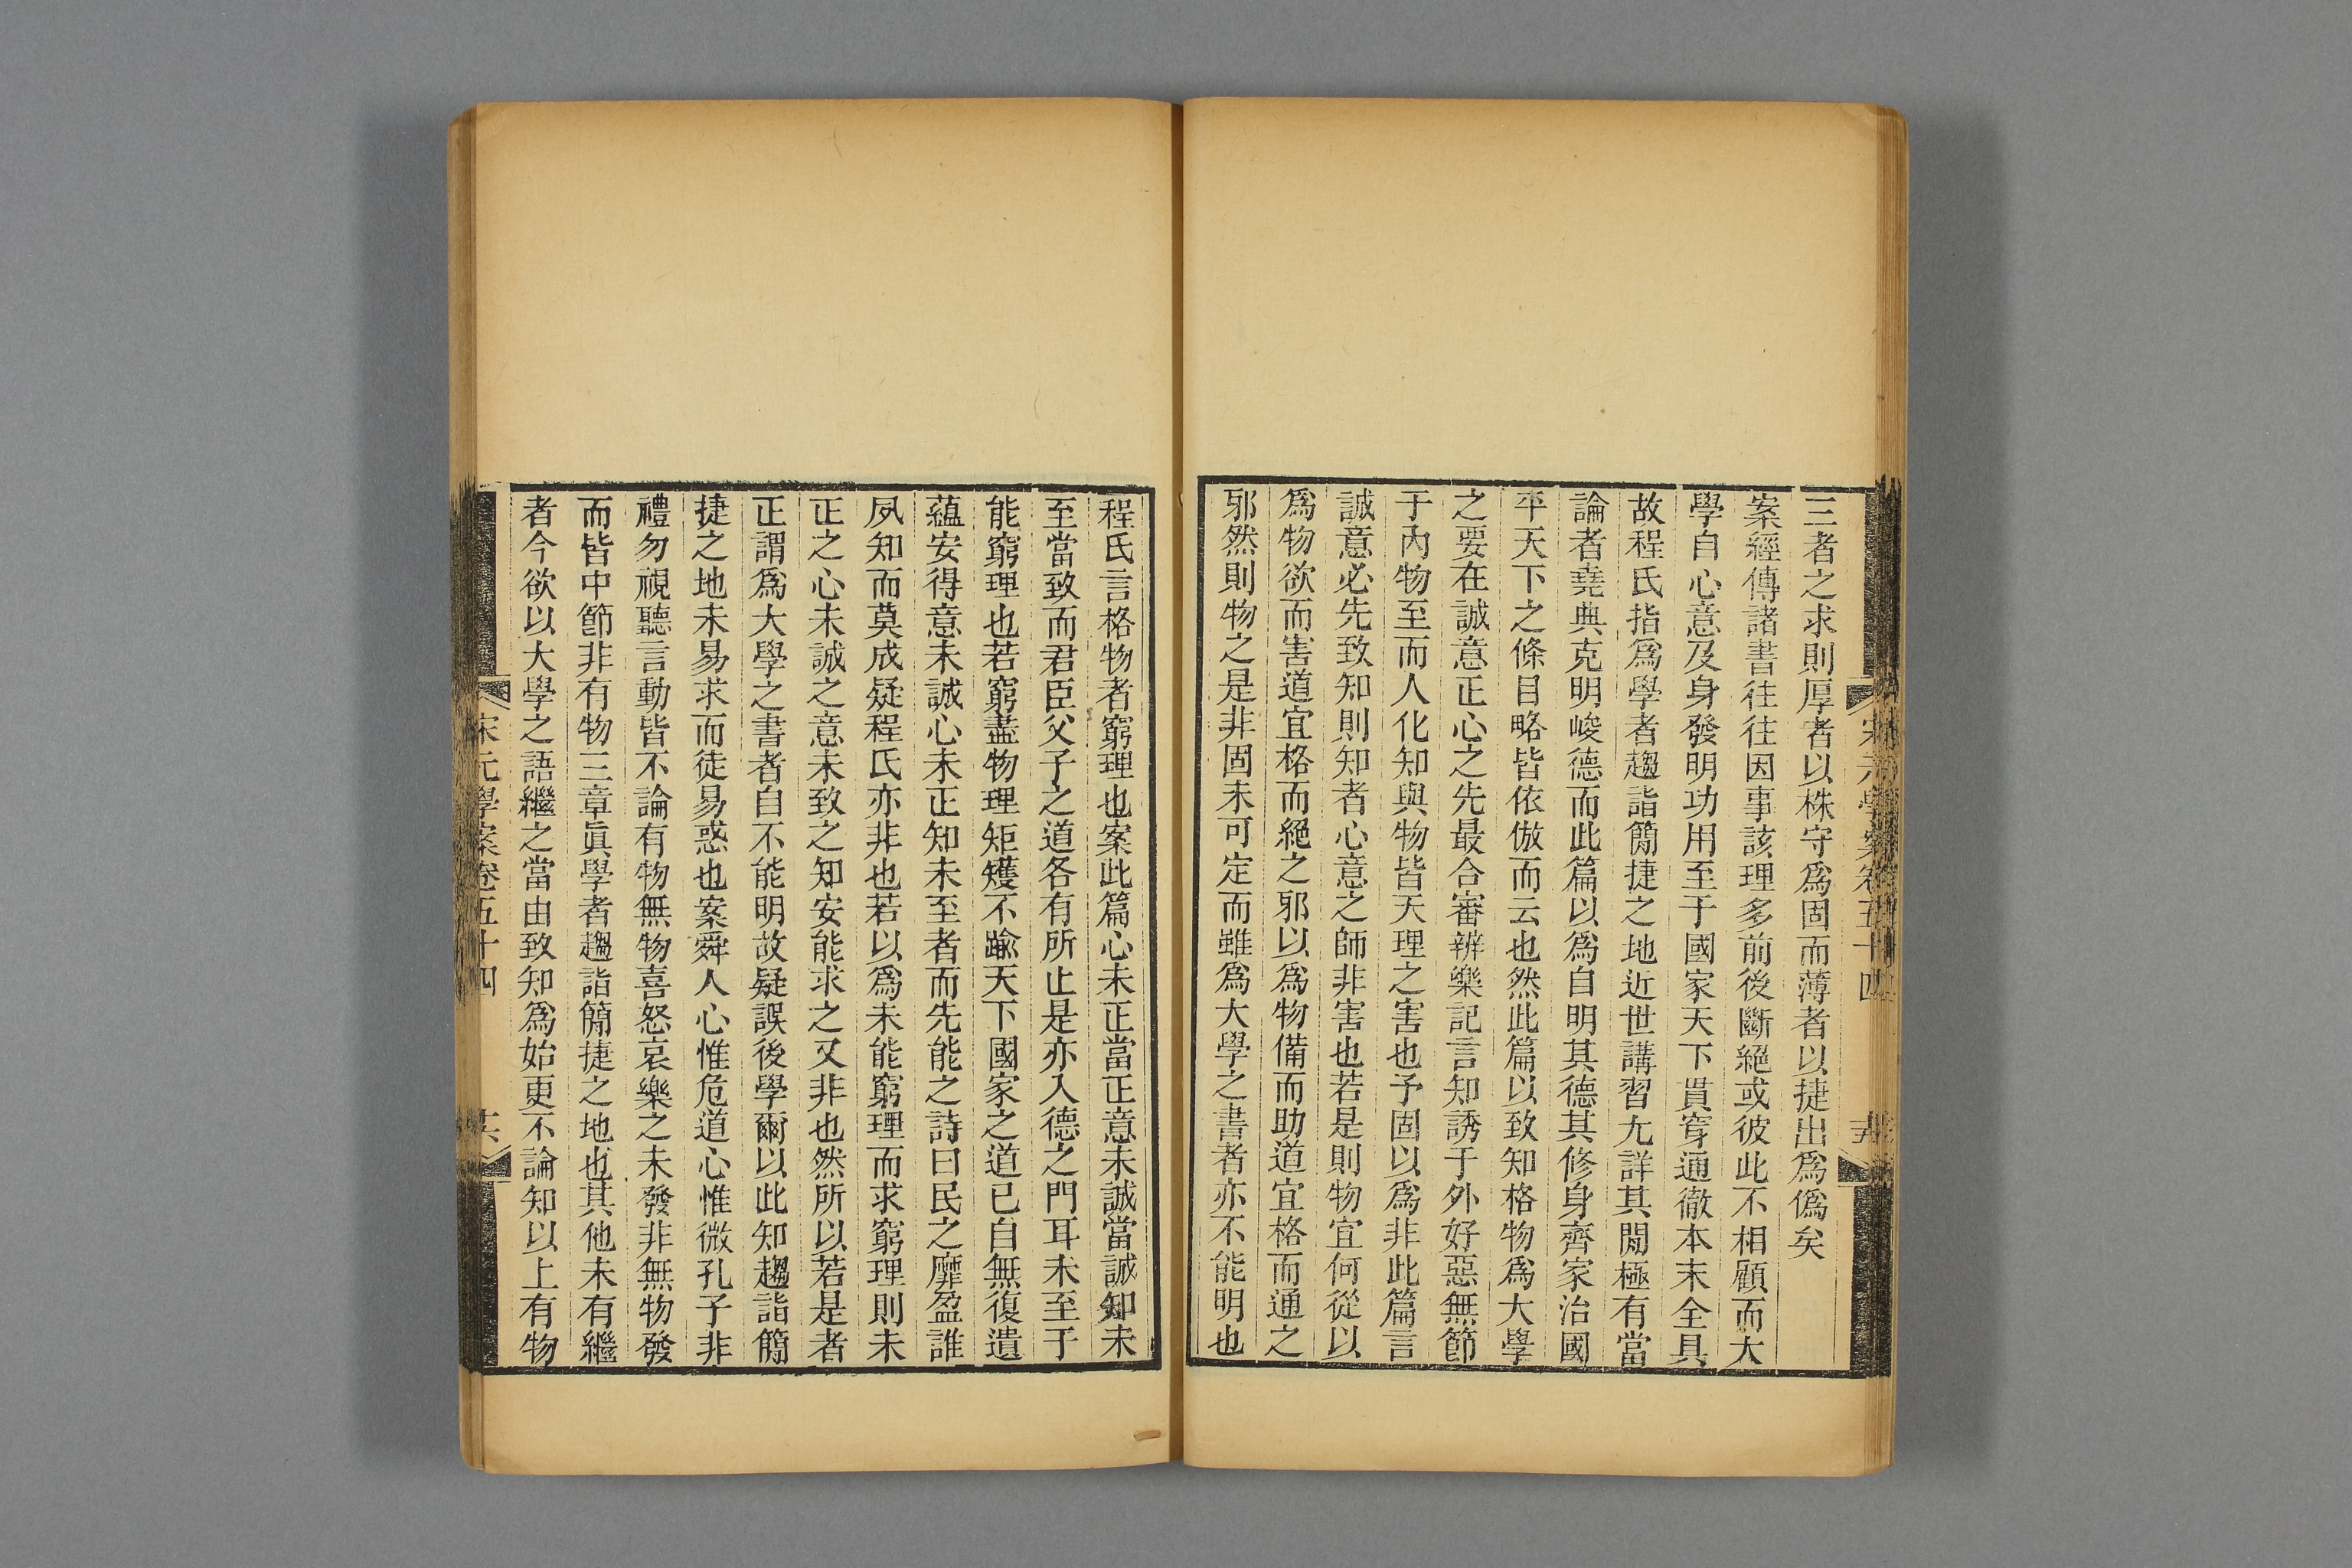 宋元學案卷五十四
三者之求則厚者以株守爲固而薄者以捷出爲僞矣
案經傳諸書往往因事該理多前後斷絕或彼此不相顧而大
學自心意及身發明功用至于國家天下貫穿通徹本末全具
故程氏指爲學者趨詣簡捷之地近世講習尢詳其閒極有當
論者堯典克明峻德而此篇以爲自明其德其修身齊家治國
平天下之條目略皆依倣而云也然此篇以致知格物爲大學
之要在誠意正心之先最合審辨樂記言知誘于外好惡無節
于內物至而人化知與物皆天理之害也予固以爲非此篇言
誠意必先致知則知者心意之師非害也若是則物宜何從以
爲物欲而害道宜格而絕之邪以爲物備而助道宜格而通之
邪然則物之是非固未可定而雖爲大學之書者亦不能明也
程氏言格物者窮理也案此篇心未正當正意未誠當誠知未
至當致而君臣父子之道各有所止是亦入德之門耳未至于
能窮理也若窮盡物理矩矱不踰天下國家之道已自無復遺
蘊安得意未誠心未正知未至者而先能之詩曰民之靡盈誰
夙知而莫成疑程氏亦非也若以爲未能窮理而求窮理則未
正之心未誠之意未致之知安能求之又非也然所以若是者
正謂爲大學之書者自不能明故疑誤後學爾以此知趨詣簡
捷之地未易求而徒易惑也案舜人心惟危道心惟微孔子非
禮勿視聽言動皆不論有物無物喜怒哀樂之未發非無物發
而皆中節非有物三章眞學者趨詣簡捷之地也其他未有繼
者今欲以大學之語繼之當由致知爲始更不論知以上有物
宋元學案卷五十四